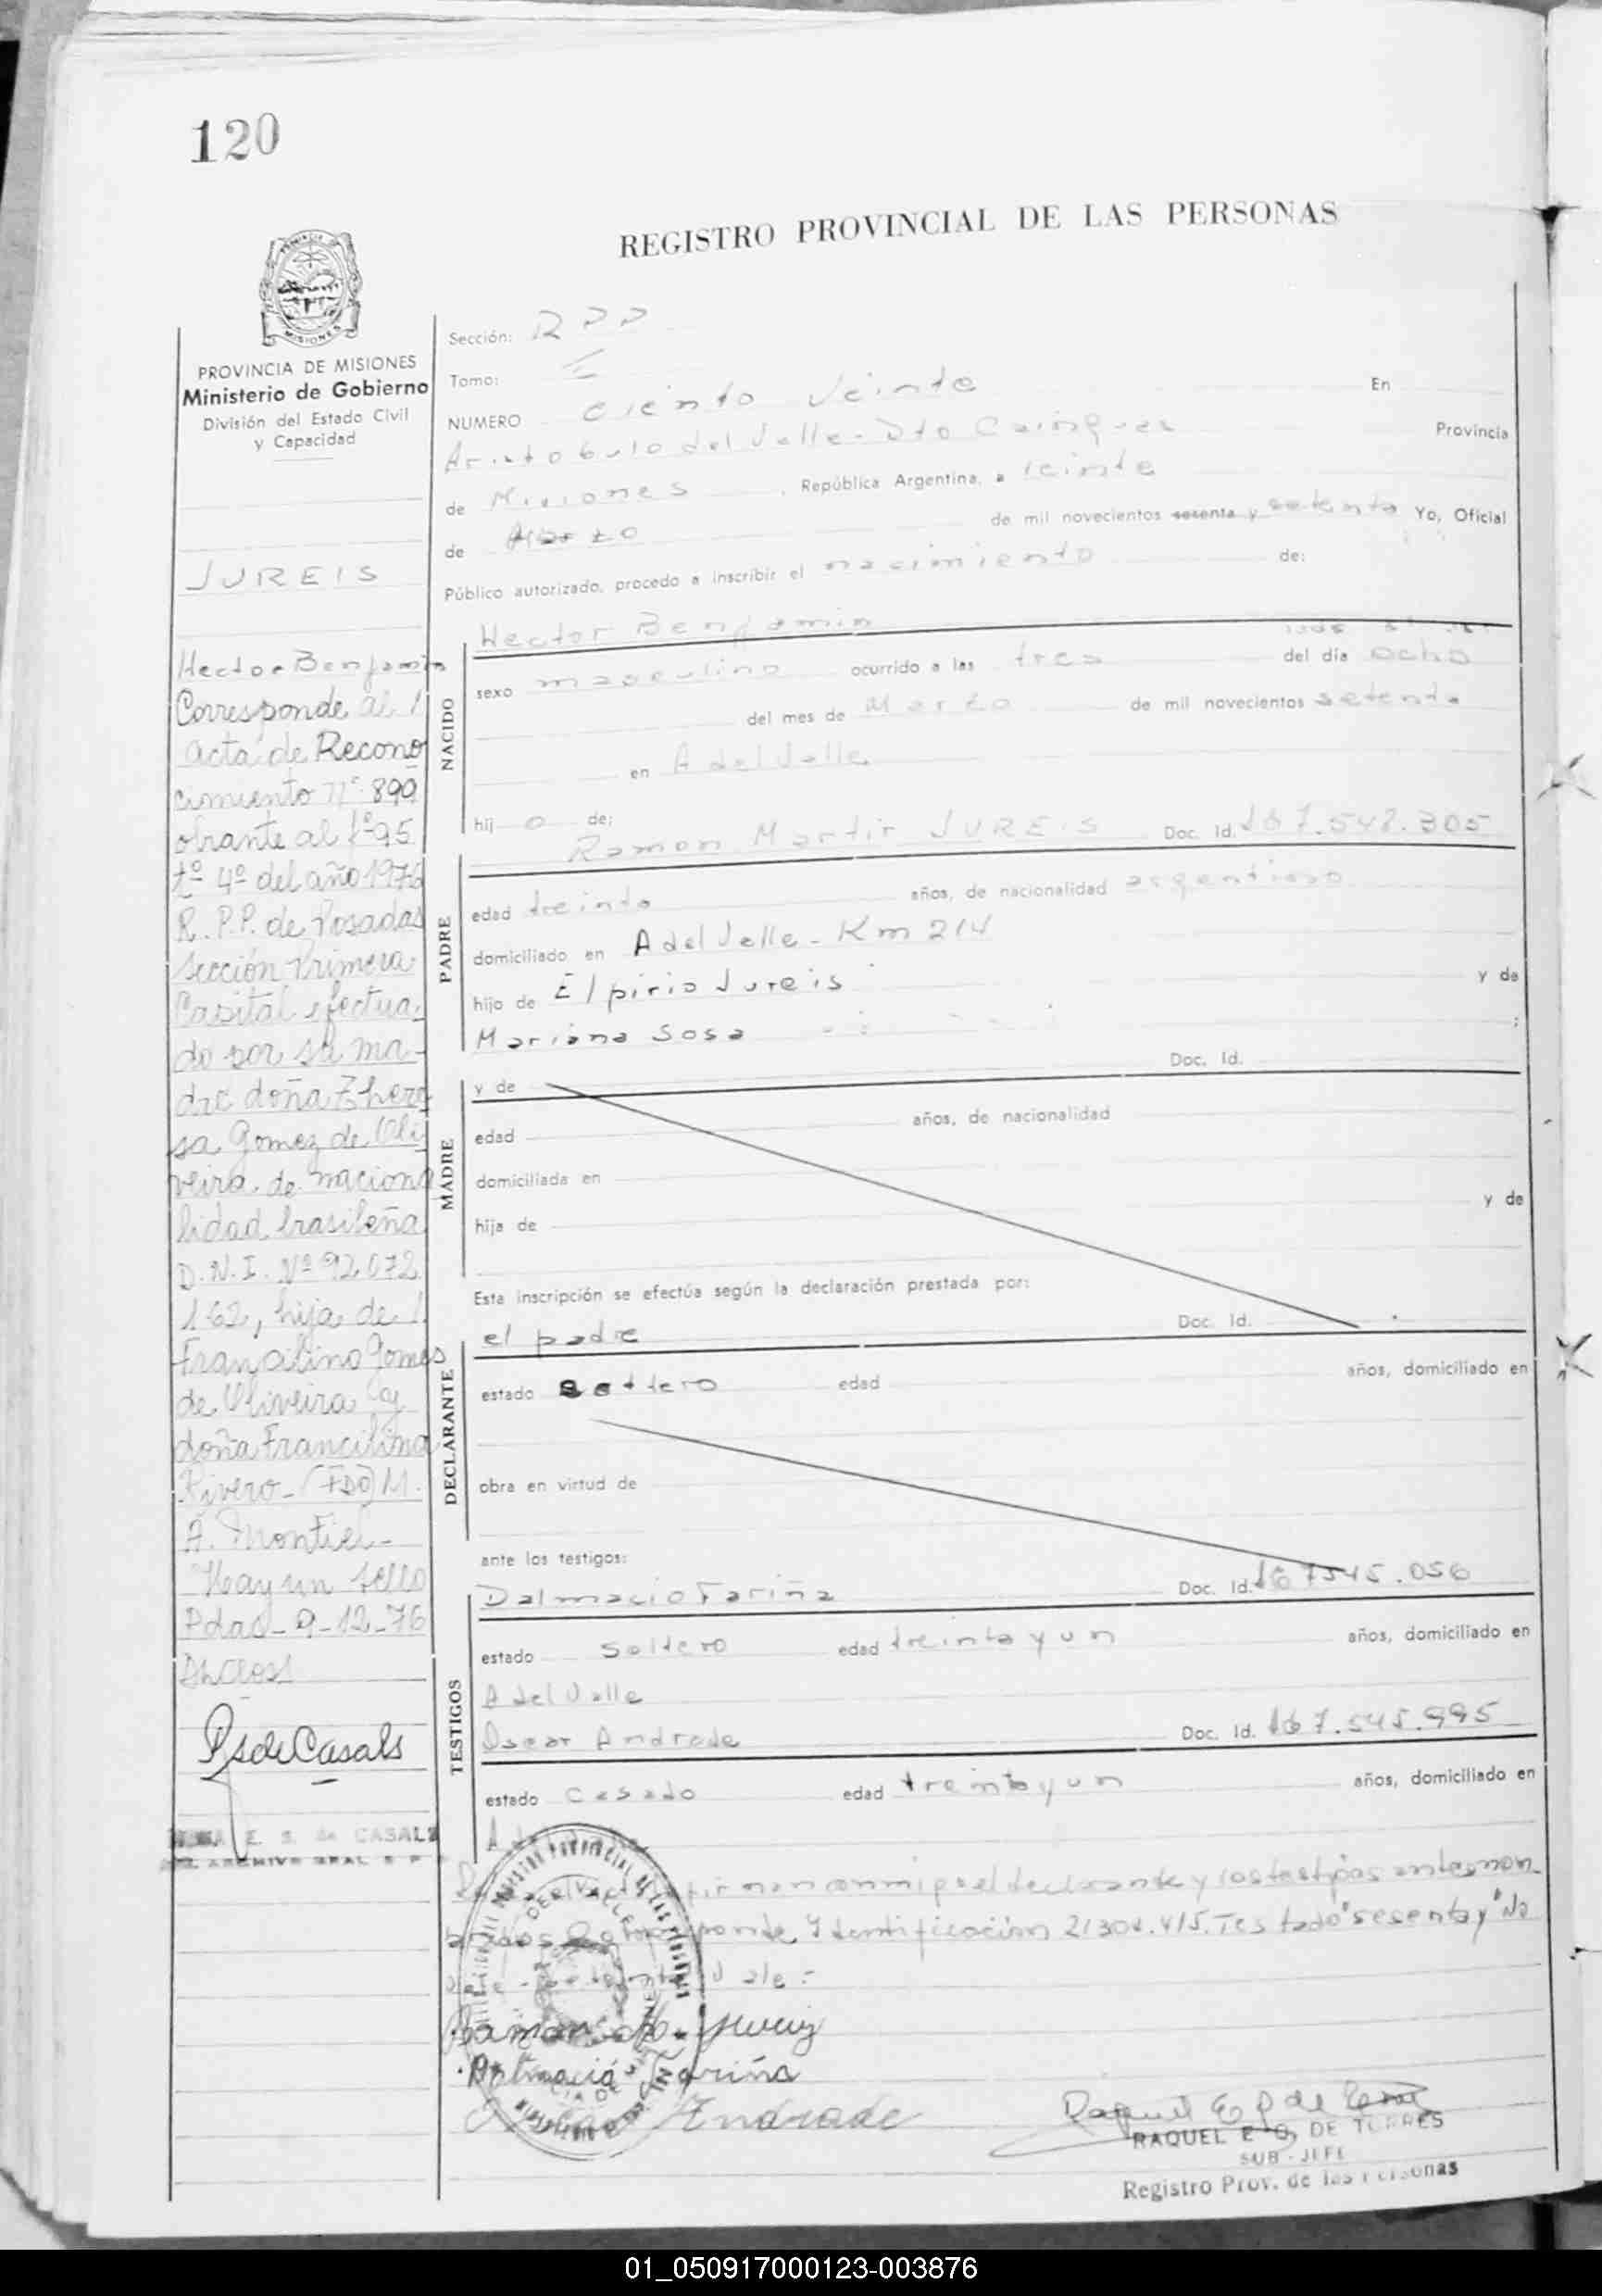 120
REGISTRO PROVINCIAL DE LAS PERSONAS
MISIONES
PROVINCIA DE MISIONES
Ministerio de Gobierno
División del Estado Civil
y Capacidad
JUREIS
Hector Benjamin
Corresponde al
acta de Recono
cimiento nº 899
obrante al fº 95
tº 4º del año 1976
R.P.P. de Posadas
Sección Primera
Capital efectua-
do por su ma-
dre doña
sa Gomez de Oli
veira de naciona
lidad brasileña
D.N.I. Nº 92.072
162, hija de
Francilino Gomes
de Oliveira y
doña Francilina
Rivero - (FDO) M.
A. Montiel -
Hay un sello
Pdas - 9-12-76
PsdeCasals
E. S. de CASALS
ARCHIVO GRAL
Sección: RPP
Tomo:
NUMERO ciento veinte En
Aristobulo del Valle - Dto Cainguas Provincia
de Misiones, República Argentina, a veinte
de Marzo de mil novecientos sesenta y setenta Yo, Oficial
Público autorizado, procedo a inscribir el nacimiento de:
Hector Benjamin
NACIDO
sexo masculino ocurrido a las tres del día ocho
del mes de Marzo de mil novecientos setenta
en A del Valle
hijo de:
Ramon Martir JUREIS Doc. Id. 7.548.305
PADRE
edad treinta años, de nacionalidad argentino
domiciliado en A del Valle - Km 214
hijo de Elpirio Jureis y de
Mariana Sosa ;
MADRE
y de Doc. Id.
edad años, de nacionalidad
domiciliada en
hija de y de
Esta inscripción se efectúa según la declaración prestada por:
el padre Doc. Id.
DECLARANTE
estado soltero edad años, domiciliado en
obra en virtud de
ante los testigos:
TESTIGOS
Dalmacio Fariña Doc. Id. 7545.056
estado soltero edad treinta y un años, domiciliado en
A del Valle
Oscar Andrade Doc. Id. 7.545.995
estado casado edad treinta y un años, domiciliado en
firman conmigo el declarante y los testigos antes nom
Identificación 21304.415. Testado "sesenta y" No
vale
Dalmacio Fariña
Andrade
RAQUEL E. DE TORRES
SUB-JEFE
Registro Prov. de las Personas
01_050917000123-003876